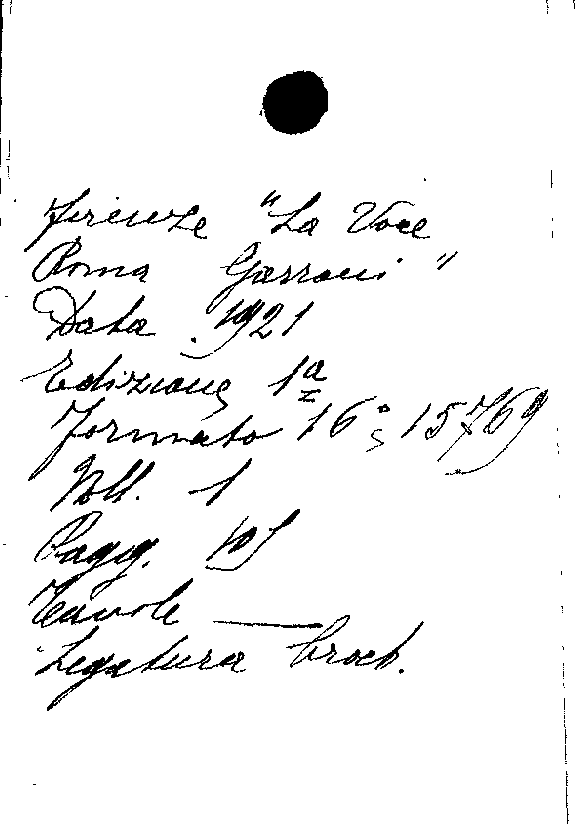 Firenze "La Voce
Roma Garroni"
Data 1921
Edizione 1ª
formato 16° 15769
Voll. 1
Pagg. 101
Tavole —
Legatura broch.